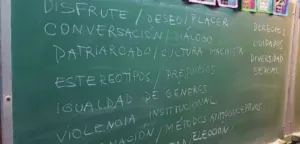 DISFRUTE / DESEO / PLACER
CONVERSACIÓN / DIÁLOGO
PATRIARCADO / CULTURA MACHISTA
ESTEREOTIPOS / PREJUICIOS
IGUALDAD DE GÉNEROS
VIOLENCIA INSTITUCIONAL
MÉTODOS ANTICONCEPTIVOS
ELECCIÓN
DERECHOS
CUIDADOS
DIVERSIDAD
SEXUAL